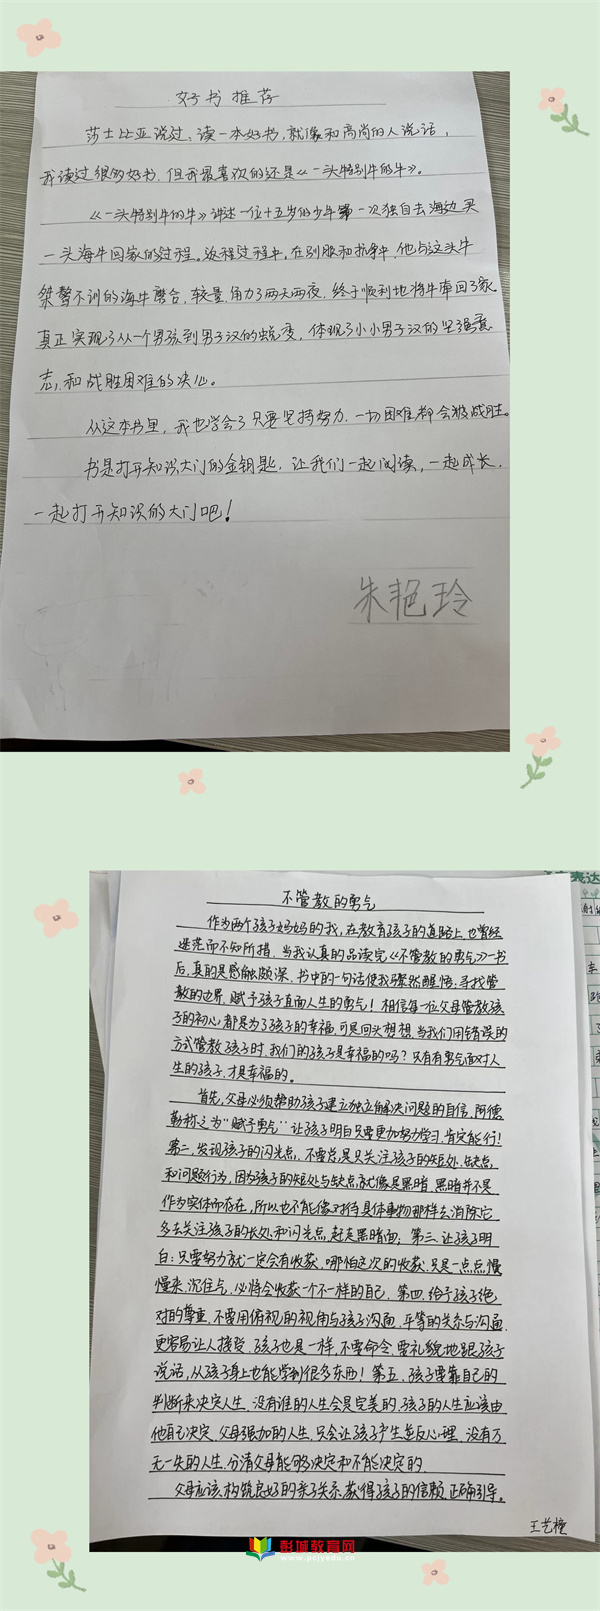 好书推荐
莎士比亚说过，读一本好书，就像和高尚的人说话，
我读过很多好书，但我最喜欢的还是《一头特别牛的牛》。
《一头特别牛的牛》讲述一位十五岁的少年第一次独自去海边买
一头海牛回家的过程。返程过程中，在驯服和抗争中，他与这头牛
桀骜不训的海牛磨合，较量，角力了两天两夜，终于顺利地将牛牵回了家。
真正实现了从一个男孩到男子汉的蜕变，体现了小小男子汉的坚强意
志，和战胜困难的决心。
从这本书里，我也学会了只要坚持努力，一切困难都会被战胜。
书是打开知识大门的金钥匙，让我们一起阅读，一起成长，
一起打开知识的大门吧！
朱艳玲
不管教的勇气
作为两个孩子妈妈的我，在教育孩子的道路上，也曾经
迷茫而不知所措，当我认真的品读完《不管教的勇气》一书
后，真的是感触颇深，书中的一句话使我骤然醒悟：寻找管
教的边界，赋予孩子直面人生的勇气！相信每一位父母管教孩
子的初心，都是为了孩子的幸福，可是回头想想，当我们用错误的
方式管教孩子时，我们的孩子是幸福的吗？只有有勇气面对人
生的孩子，才是幸福的。
首先，父母必须帮助孩子建立独立解决问题的自信，阿德
勒称之为“赋予勇气”让孩子明白只要更加努力学习，肯定能行！
第二，发现孩子的闪光点，不要总是只关注孩子的短处、缺点，
和问题行为，因为孩子的短处与缺点就像是黑暗，黑暗并不是
作为实体而存在，所以也不能像对待具体事物那样去消除它，
多去关注孩子的长处和闪光点，赶走黑暗面；第三，让孩子明
白：只要努力就一定会有收获，哪怕这次的收获只是一点点，慢
慢来，沉住气，必将会收获一个不一样的自己，第四，给予孩子绝
对的尊重，不要用俯视的视角与孩子沟通，平等的关系与沟通，
更容易让人接受，孩子也是一样，不要命令，要礼貌地跟孩子
说话，从孩子身上也能学到很多东西！第五，孩子要靠自己的
判断来决定人生，没有谁的人生会是完美的，孩子的人生应该由
他自己决定，父母强加的人生，只会让孩子产生逆反心理，没有万
无一失的人生，分清父母能够决定和不能决定的，
父母应该，构筑良好的亲子关系，获得孩子的信赖，正确引导。
王艺橦
表达
彭城教育网
www.pcjyedu.cn